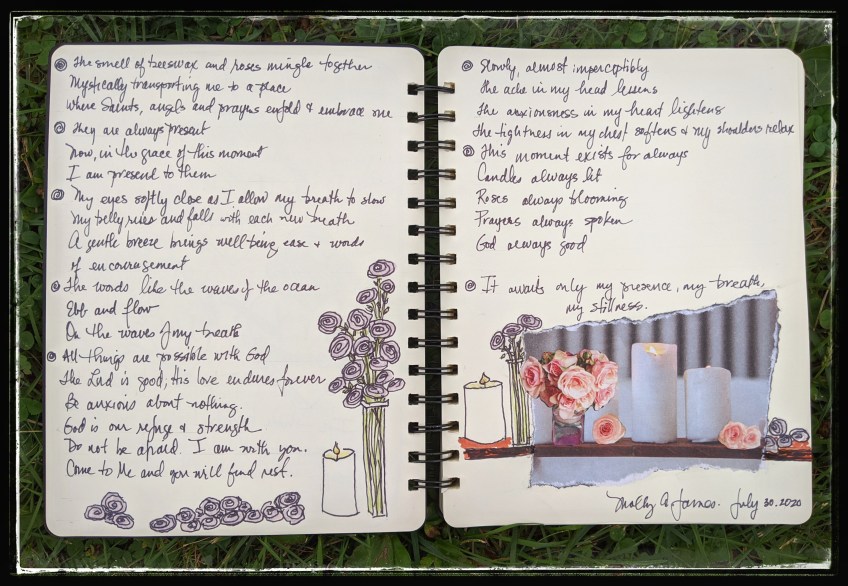 The smell of beeswax and roses mingle together
Mystically transporting me to a place
Where Saints, angels and prayers enfold & embrace me
They are always present
Now, in the grace of this moment
I am present to them
My eyes softly close as I allow my breath to slow
My belly rises and falls with each new breath
A gentle breeze brings well-being, ease + words
of encouragement
The words like the waves of the ocean
Ebb and flow
On the waves of my breath
All things are possible with God
The Lord is good, His love endures forever
Be anxious about nothing.
God is our refuge & strength
Do not be afraid. I am with you.
Come to Me and you will find rest.
Slowly, almost imperceptibly
The ache in my head lessens
The anxiousness in my heart lightens
The tightness in my chest softens & my shoulders relax
This moment exists for always
Candles always lit
Roses always blooming
Prayers always spoken
God always good
It awaits only my presence, my breath,
my stillness.
Molly A James. July 30. 2020